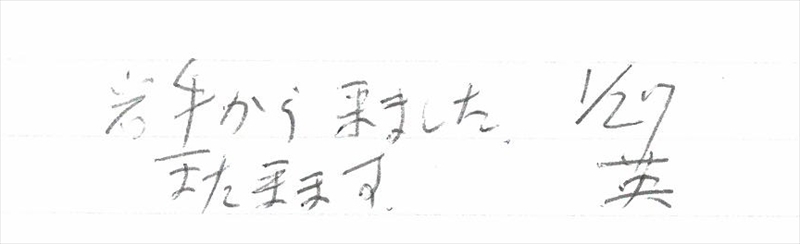 岩手から来ました. 1/27
また来ます. 英